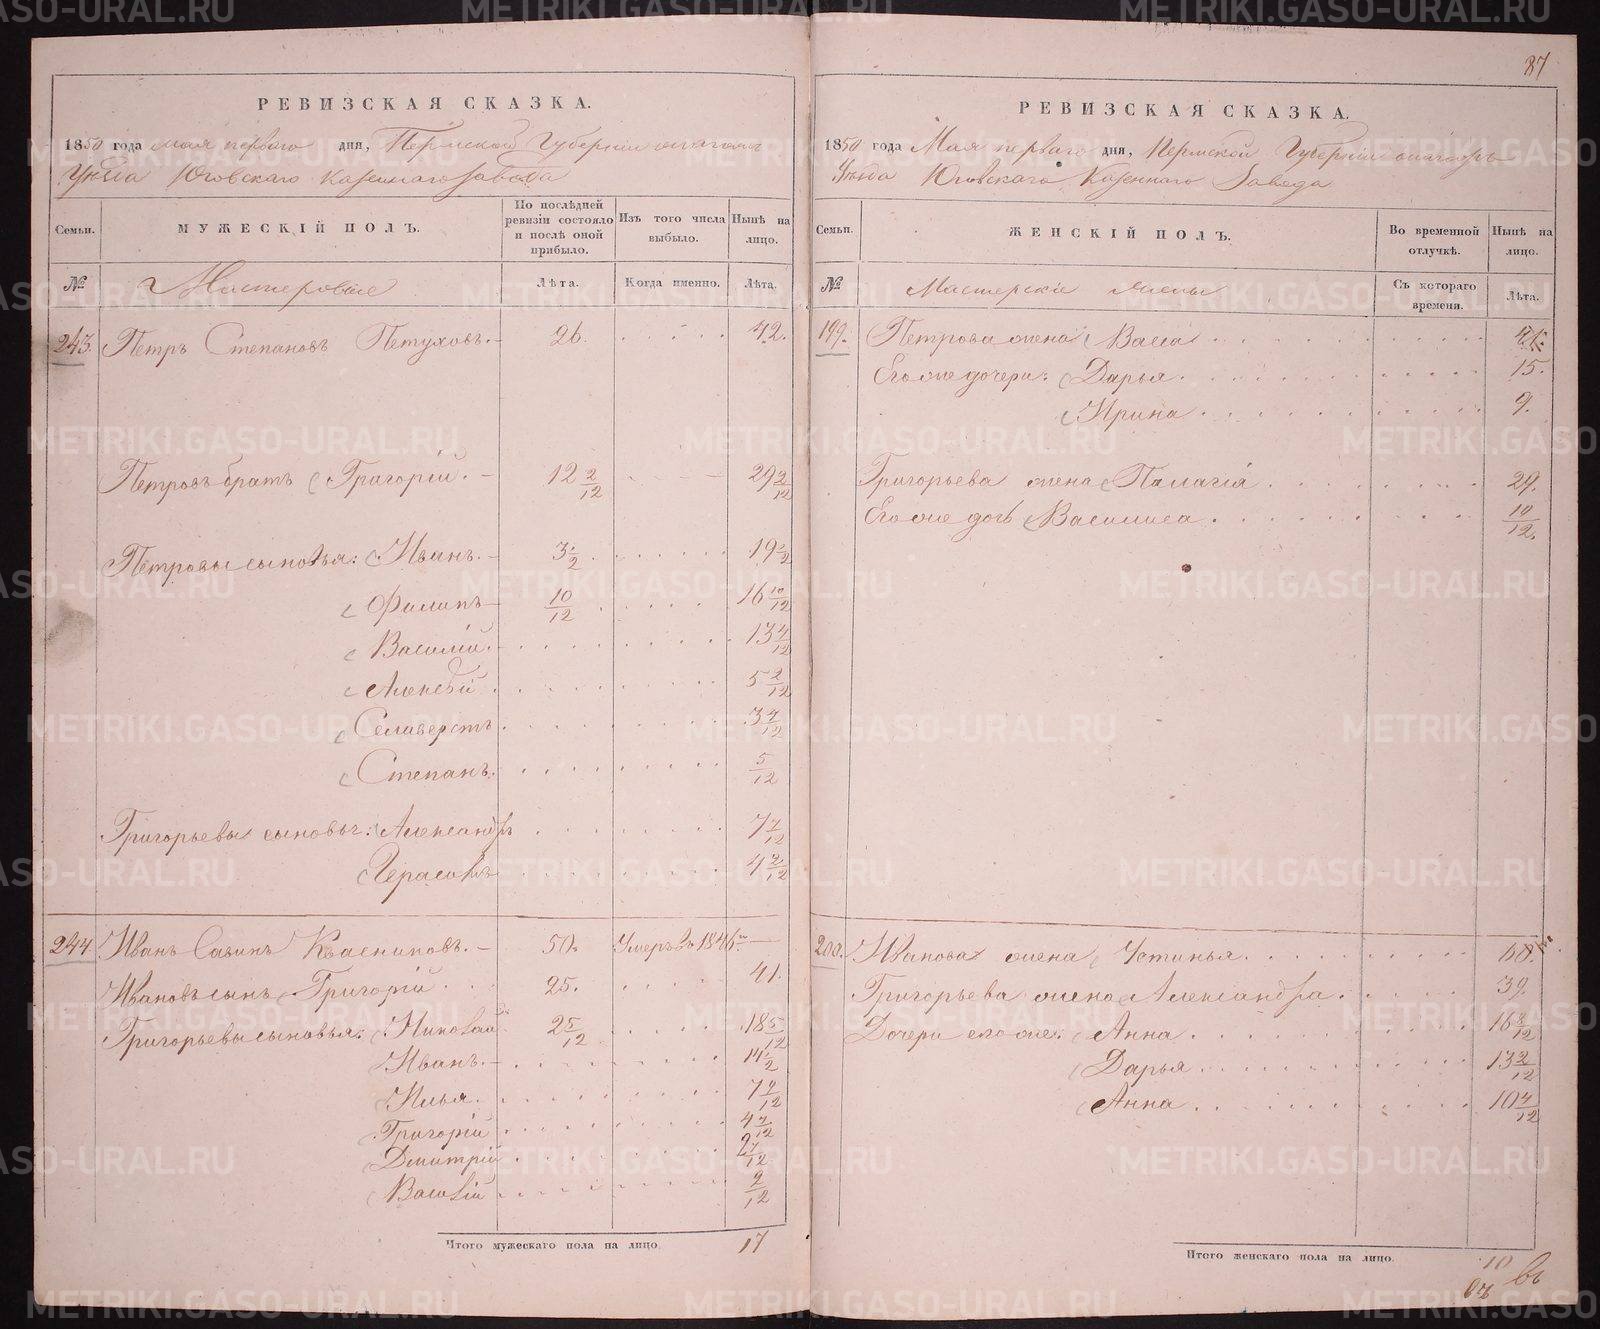 87
РЕВИЗСКАЯ СКАЗКА.
1850 года мая перваго дня, Пермской Губернии
Уѣзда Юговскаго Казеннаго завода
Семьи.
МУЖЕСКІЙ ПОЛЪ.
По послѣдней ревизіи состояло и послѣ оной прибыло.
Изъ того числа выбыло.
Нынѣ на лицо.
№
Мастеровые
Лѣта.
Когда именно.
Лѣта.
243. Петръ Степановъ Пѣтуховъ. 26. 42.
Петровъ братъ Григорій. 12 2/12 29 2/12
Петровы сыновья: Иванъ. 3 1/2 19 1/2
Филипъ 10/12 16 10/12
Василій. 13 4/12
Алексѣй 5 2/12
Селиверстъ 3 4/12
Степанъ. 5/12
Григорьевы сыновья: Александръ 7 7/12
Герасимъ 4 2/12
244 Иванъ Савинъ Квасниковъ. 50. Умеръ въ 1846.
Ивановъ сынъ Григорій 25. 41.
Григорьевы сыновья: Николай 2 5/12 18 5/12
Иванъ. 14 1/2
Илья. 7 9/12
Григорій 4 7/12
Дмитрій 2 7/12
Василій 2/12
Итого мужескаго пола на лицо. 17
РЕВИЗСКАЯ СКАЗКА.
1850 года Мая перваго дня, Пермской Губерніи
Уѣзда Юговскаго Казеннаго Завода
Семьи.
ЖЕНСКІЙ ПОЛЪ.
Во временной отлучкѣ.
Нынѣ на лицо.
№
Мастерскіе жены
Съ котораго времени.
Лѣта.
199. Петрова жена Васса
Его же дочери: Дарья. 15.
Ирина 9.
Григорьева жена Палагія 29.
Его же дочь Василиса. 10/12.
200. Иванова жена Устинья. 60.
Григорьева жена Александра. 39.
Дочери его же: Анна 16 8/12
Дарья 13 2/12
Анна 10 4/12
Итого женскаго пола на лицо. 10
METRIKI.GASO-URAL.RU